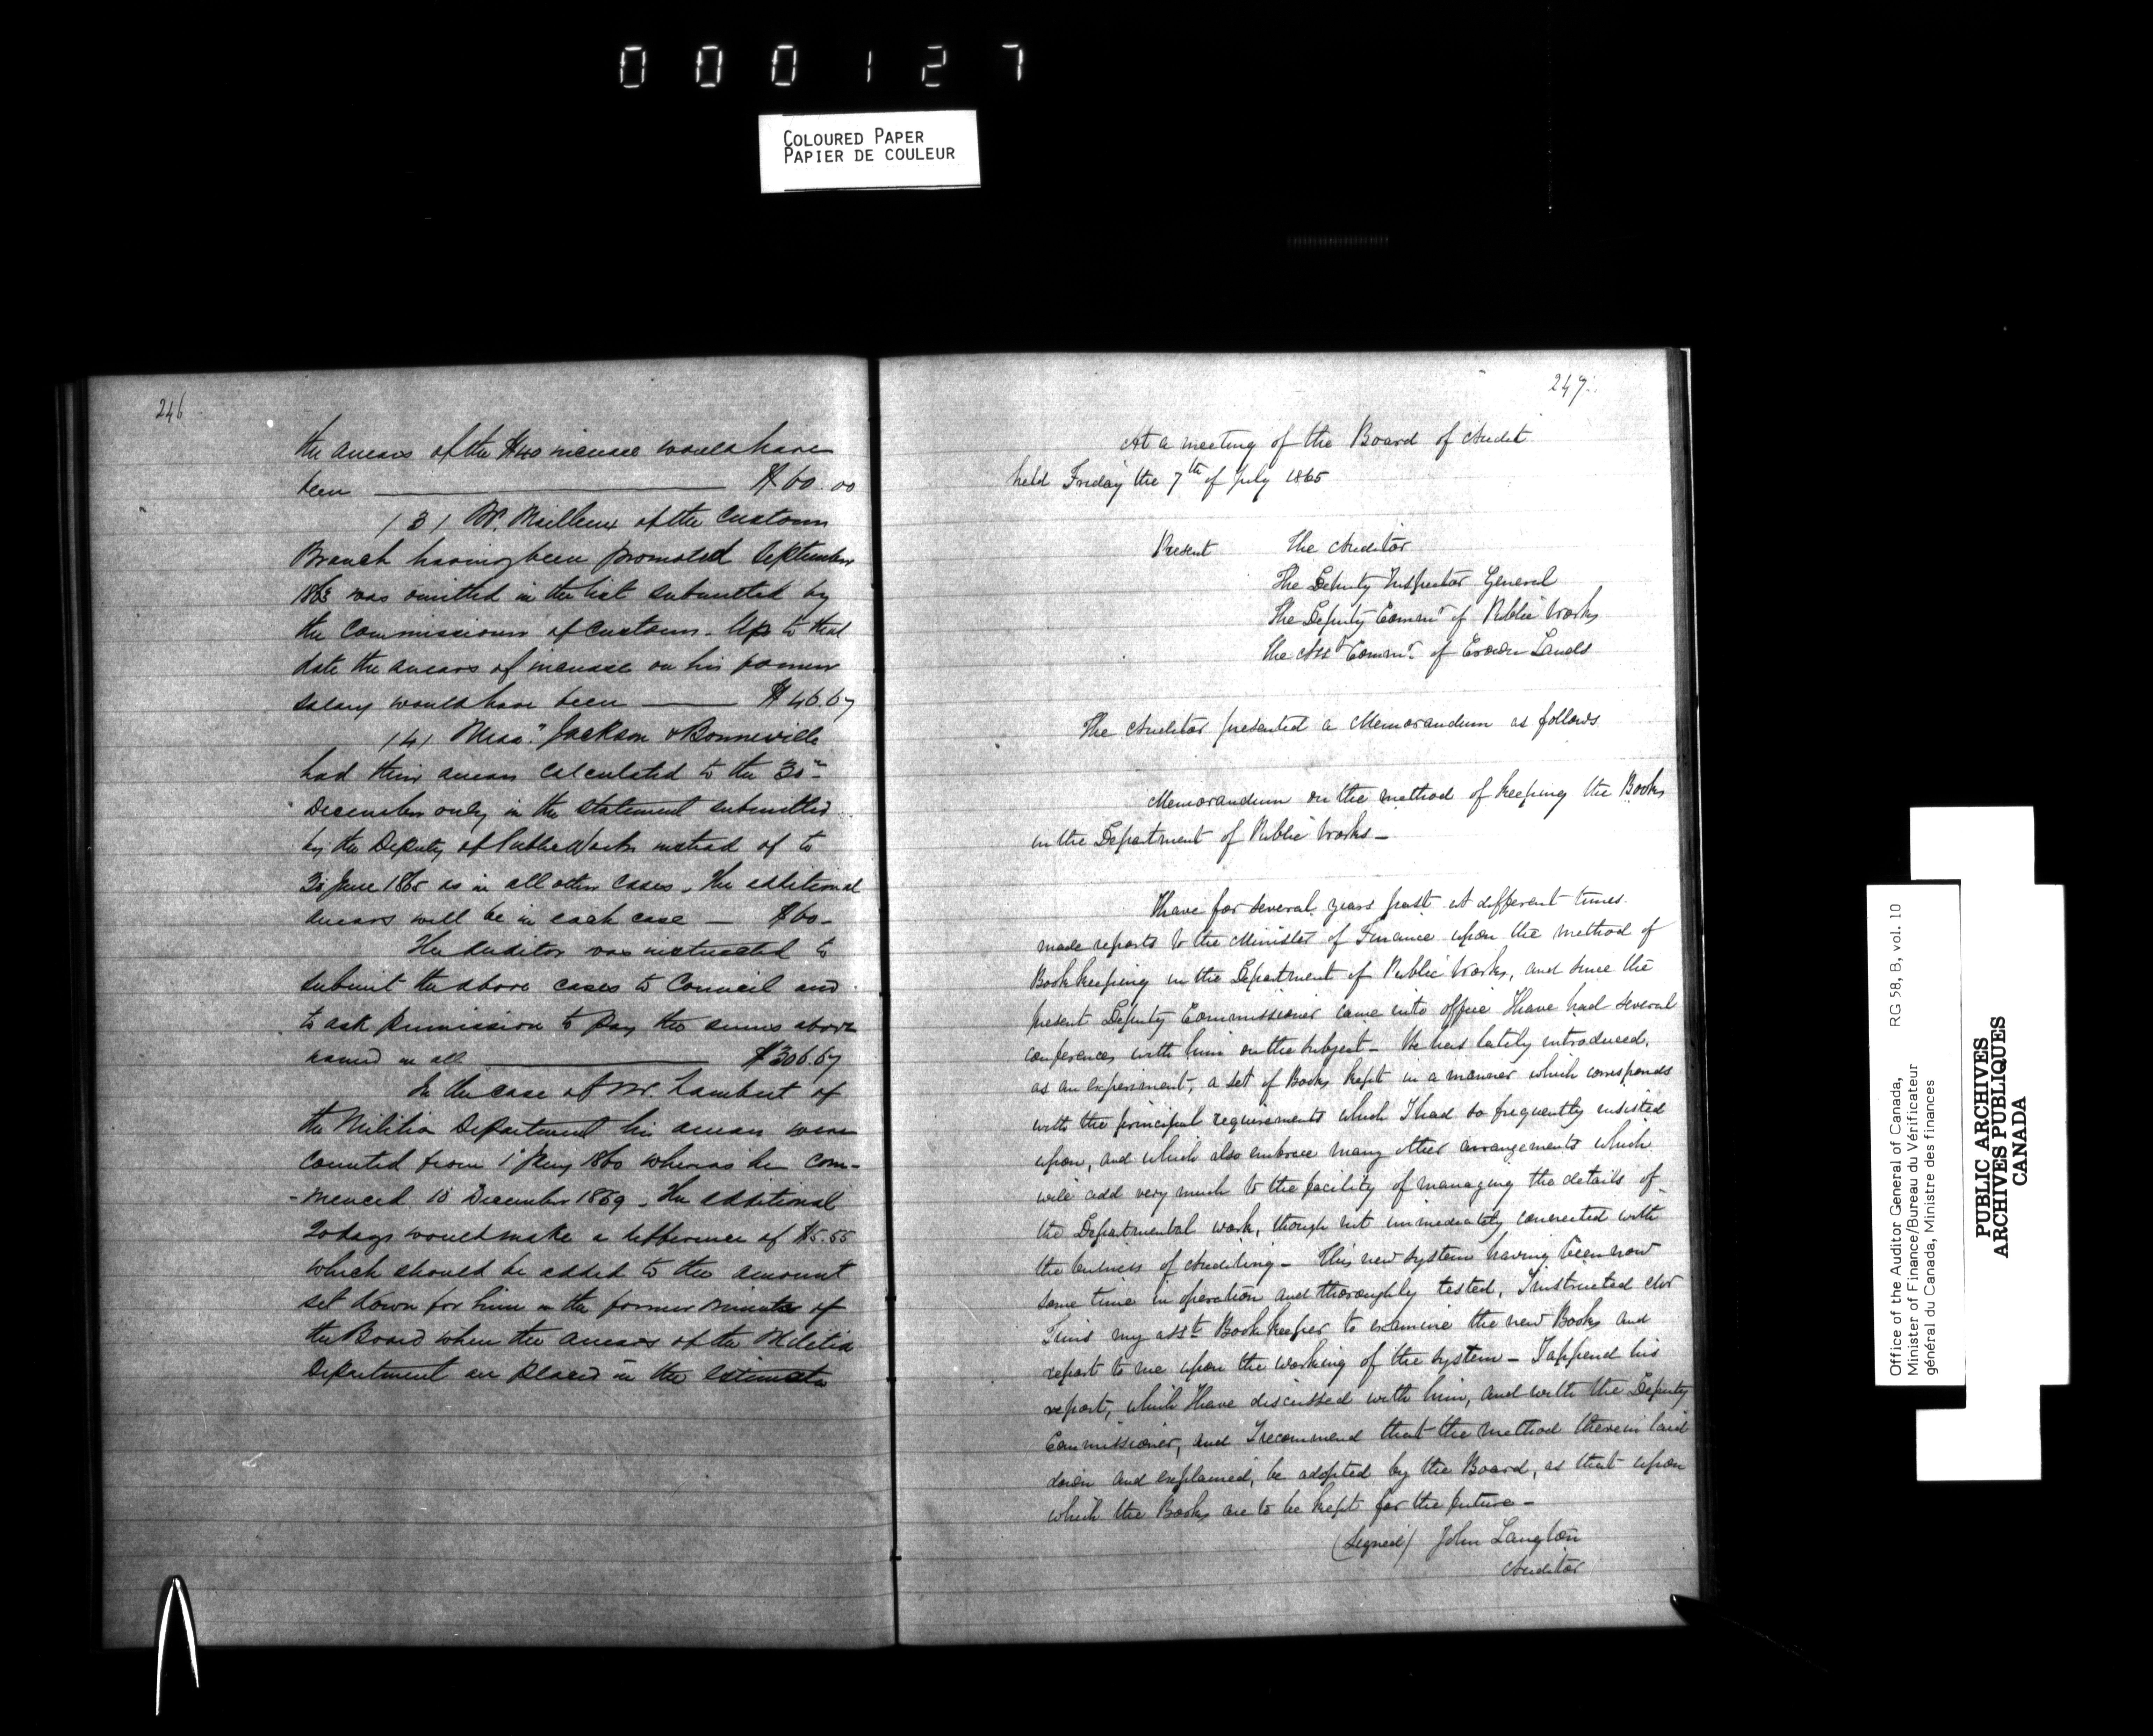 000127
COLOURED PAPER
PAPIER DE COULEUR
246
the arrears of the $40 increase would have
been $60.00
(3) Mr. Mailleux of the Customs
Branch having been promoted September
1863 was omitted in the list submitted by
the Commissioner of Customs. Up to that
date the arrears of increase on his former
salary would have been $46.67
(4) Mess.rs Jackson & Bonneville
had their arrears calculated to the 30th
December only in the statement submitted
by the Deputy of Public Works instead of to
30 June 1865 as in all other cases. The additional
arrears will be in each case — $60-
The Auditor was instructed to
submit the above cases to Council and
to ask permission to pay the sums above
named in all $306.67
In the case of Mr. Lambert of
the Militia Department his arrears were
counted from 1st Jany 1860 whereas he com-
-menced 10 December 1859. The additional
20 days would make a difference of $5.55
which should be added to the amount
set down for him in the former minute of
the Board when the arrears of the Militia
Department are placed in the estimate
247.
At a meeting of the Board of Audit
held Friday the 7th of July 1865
Present The Auditor
The Deputy Inspector General
The Deputy Commr of Public Works
The Asst Commr of Crown Lands
The Auditor presented a Memorandum as follows
Memorandum on the method of keeping the Books
in the Department of Public Works —
I have for several years past at different times
made reports to the Minister of Finance upon the method of
Bookkeeping in the Department of Public Works, and since the
present Deputy Commissioner came into office I have had several
conferences with him on the subject — He has lately introduced,
as an experiment, a set of Books kept in a manner which corresponds
with the principal requirements which I had so frequently insisted
upon, and which also embrace many other arrangements which
will add very much to the facility of managing the details of
the Departmental work, though not immediately connected with
the business of Auditing — This new system having been now
some time in operation and thoroughly tested, I instructed Mr
my asst Bookkeeper to examine the new Books and
report to me upon the working of the system — I append his
report, which I have discussed with him, and with the Deputy
Commissioner, and I recommend that the method therein laid
down and explained, be adopted by the Board, as that upon
which the Books are to be kept for the future —
(Signed) John Langton
Auditor
Office of the Auditor General of Canada, RG 58, B, vol. 10
Minister of Finance/Bureau du Vérificateur
général du Canada, Ministre des finances
PUBLIC ARCHIVES
ARCHIVES PUBLIQUES
CANADA